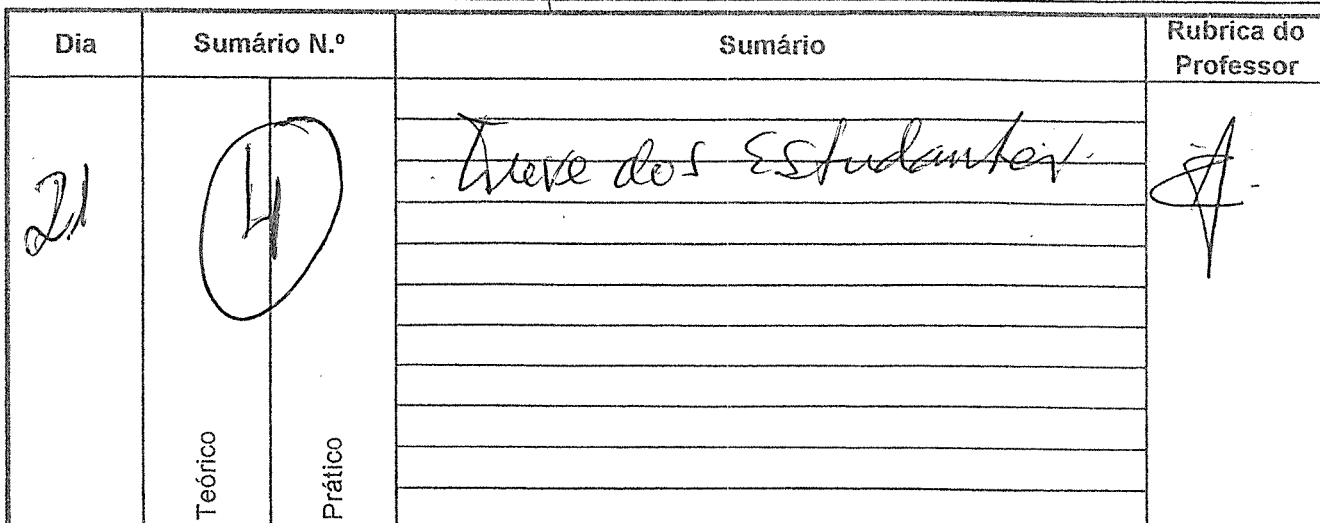 Dia Sumário N.º Sumário Rubrica do Professor
21 4 dos Estudantes.
Teórico Prático